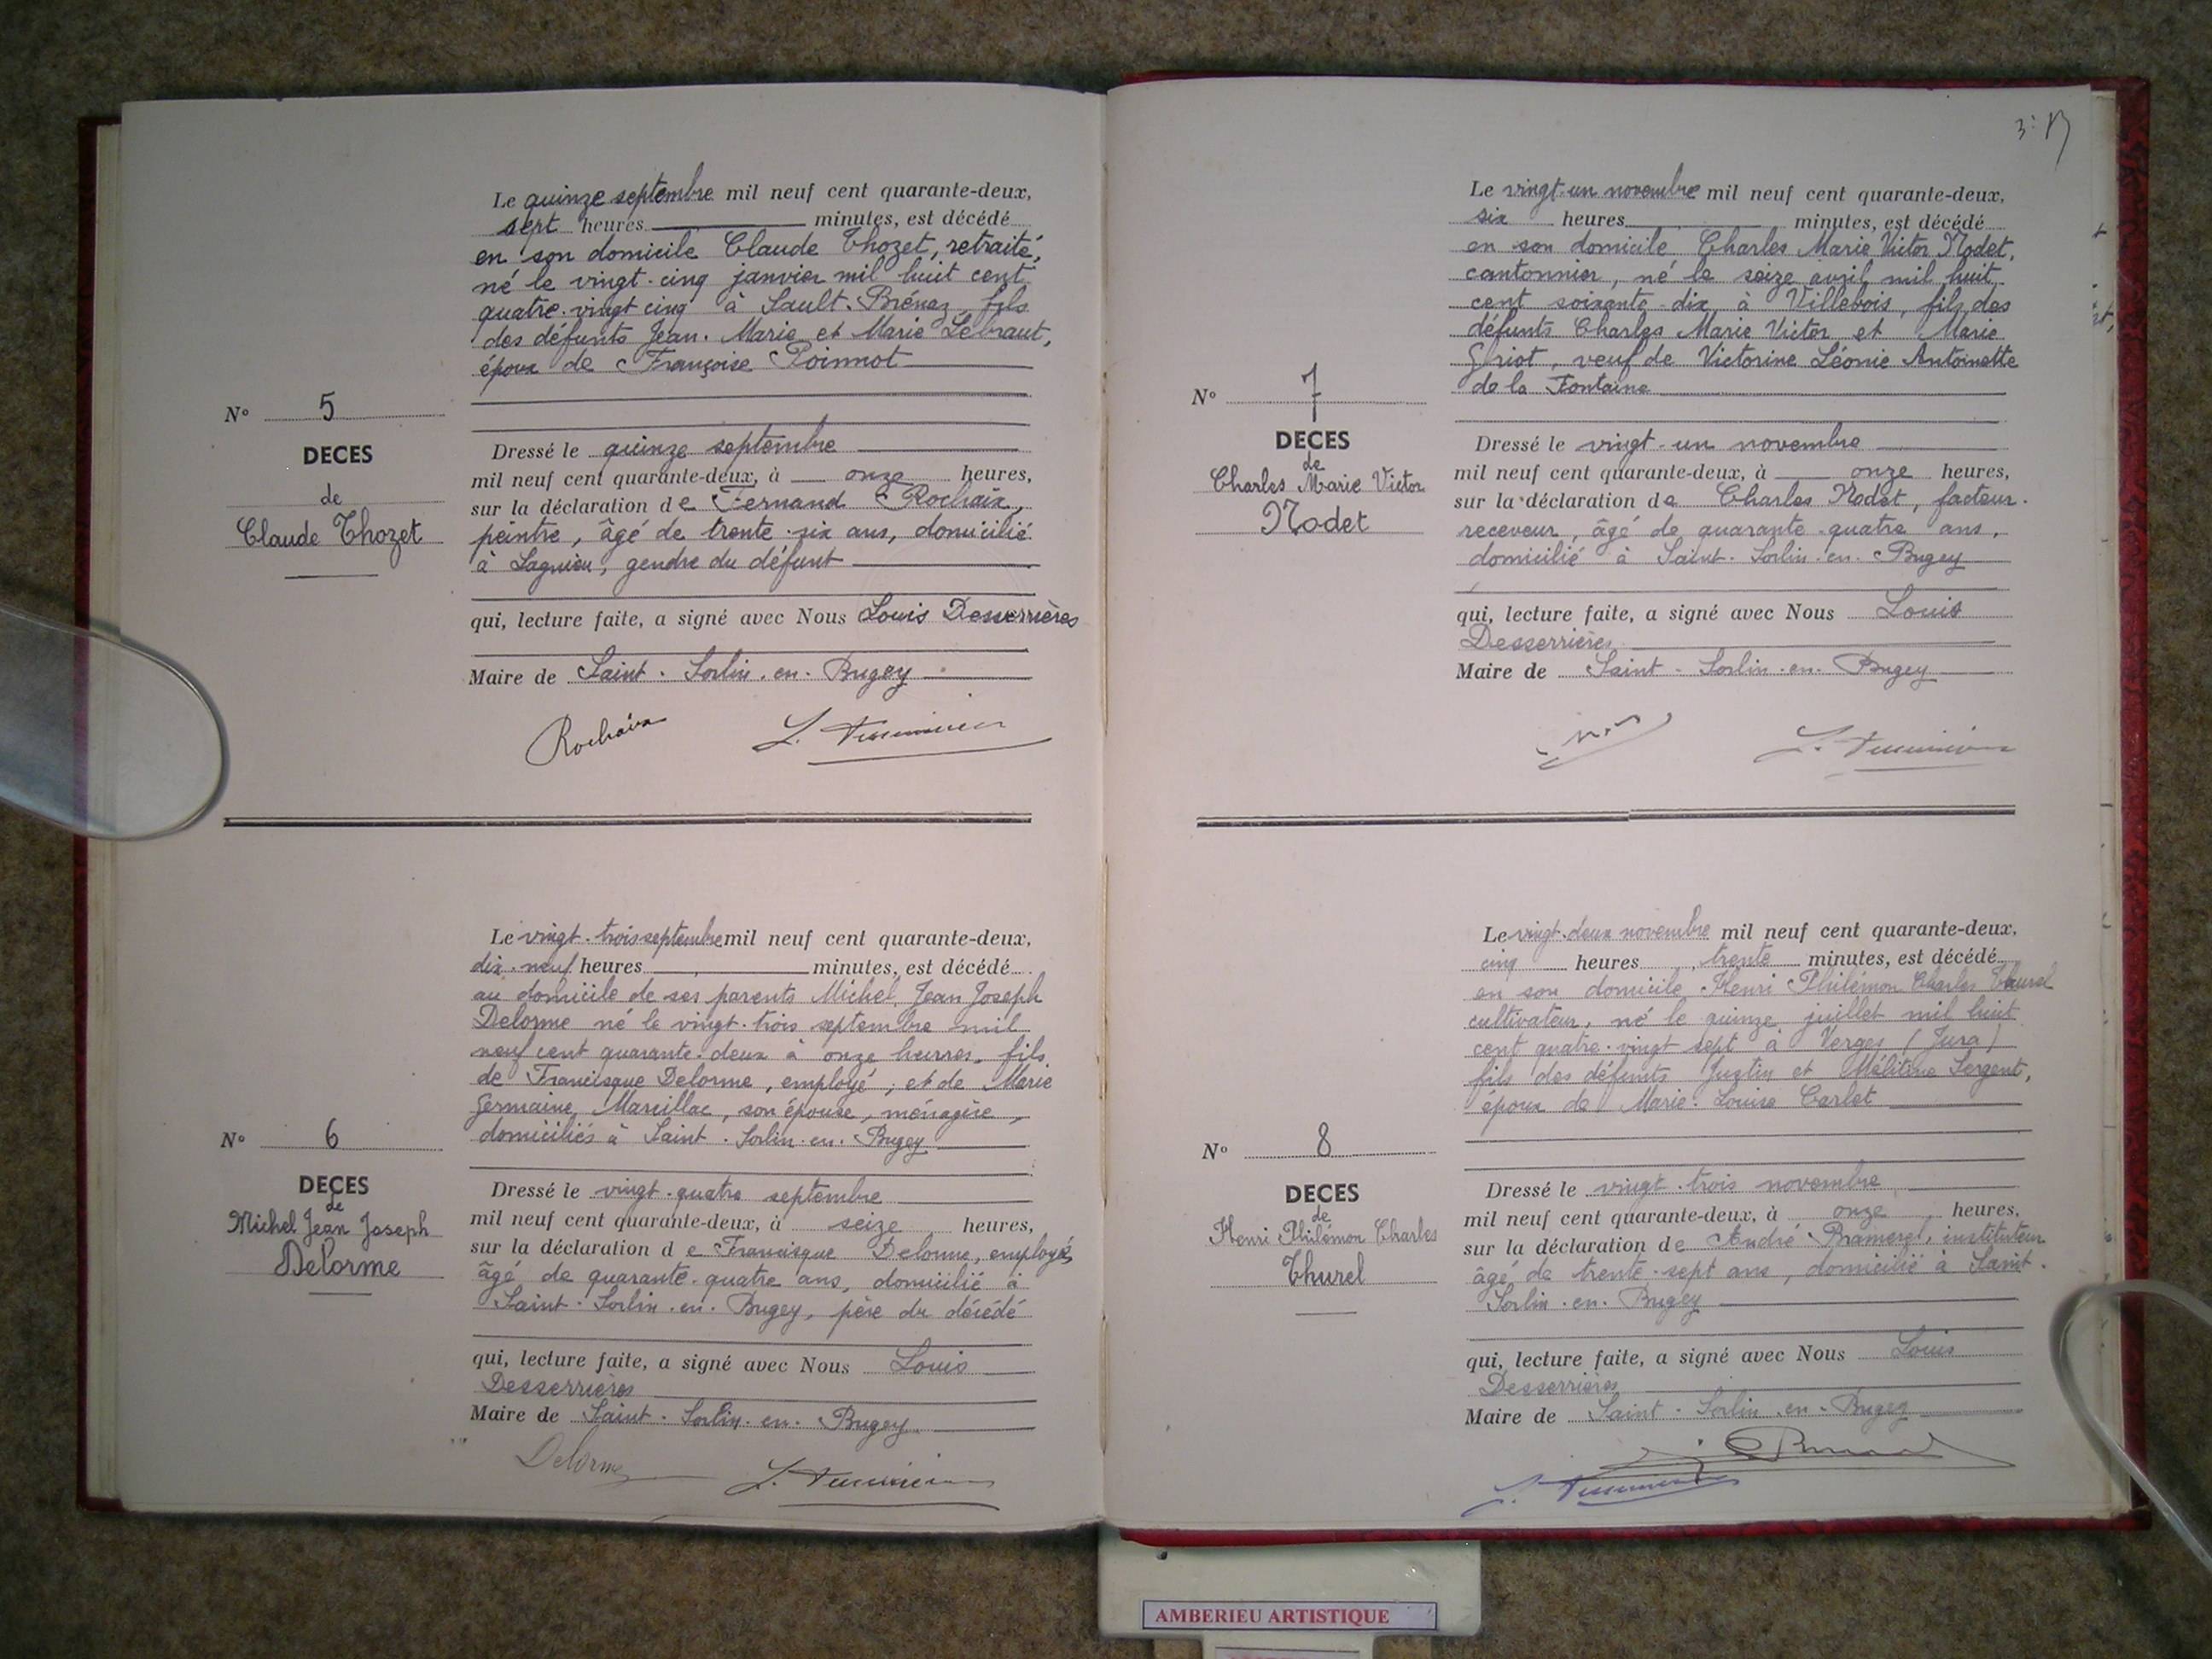 Le quinze septembre mil neuf cent quarante-deux,
sept heures minutes, est décédé
en son domicile Claude Thozet, retraité,
né le vingt-cinq janvier mil huit cent
quatre-vingt cinq à Sault-Brénaz fils
des défunts Jean-Marie et Marie Lébraut,
époux de Françoise Poinnot
N° 5
DECES
de
Claude Thozet
Dressé le quinze septembre
mil neuf cent quarante-deux, à onze heures,
sur la déclaration de Fernand Rochaix,
peintre, âgé de trente-six ans, domicilié
à Lagnieu, gendre du défunt
qui, lecture faite, a signé avec Nous Louis Desserrières
Maire de Saint-Sorlin-en-Bugey
Rochaix
Le vingt-trois septembre mil neuf cent quarante-deux,
dix-neuf heures minutes, est décédé
au domicile de ses parents Michel Jean Joseph
Delorme né le vingt-trois septembre mil
neuf cent quarante-deux à onze heures, fils
de Francisque Delorme, employé, et de Marie
Germaine Marcillac, son épouse, ménagère,
domiciliés à Saint-Sorlin-en-Bugey
N° 6
DECES
de
Michel Jean Joseph
Delorme
Dressé le vingt-quatre septembre
mil neuf cent quarante-deux, à seize heures,
sur la déclaration de Francisque Delorme, employé,
âgé de quarante-quatre ans, domicilié à
Saint-Sorlin-en-Bugey, père du décédé
qui, lecture faite, a signé avec Nous Louis
Desserrières
Maire de Saint-Sorlin-en-Bugey
Delorme
Le vingt-un novembre mil neuf cent quarante-deux,
six heures minutes, est décédé
en son domicile Charles Marie Victor Nodet,
cantonnier, né le seize avril mil huit
cent soixante-dix à Villebois, fils des
défunts Charles Marie Victor et Marie
Griot, veuf de Victorine Léonie Antoinette
de la Fontaine
N° 7
DECES
de
Charles Marie Victor
Nodet
Dressé le vingt-un novembre
mil neuf cent quarante-deux, à onze heures,
sur la déclaration de Charles Nodet, facteur-
receveur, âgé de quarante-quatre ans,
domicilié à Saint-Sorlin-en-Bugey
qui, lecture faite, a signé avec Nous Louis
Desserrières
Maire de Saint-Sorlin-en-Bugey
Le vingt-deux novembre mil neuf cent quarante-deux,
cinq heures trente minutes, est décédé
en son domicile Henri Philémon Charles Thurel
cultivateur, né le quinze juillet mil huit
cent quatre-vingt sept à Verges (Jura)
fils des défunts Justin et Mélitine Sergent,
époux de Marie-Louise Carlet
N° 8
DECES
de
Henri Philémon Charles
Thurel
Dressé le vingt-trois novembre
mil neuf cent quarante-deux, à onze heures,
sur la déclaration de André Bramerel, instituteur
âgé de trente-sept ans, domicilié à Saint-
Sorlin-en-Bugey
qui, lecture faite, a signé avec Nous Louis
Desserrières
Maire de Saint-Sorlin-en-Bugey
AMBERIEU ARTISTIQUE